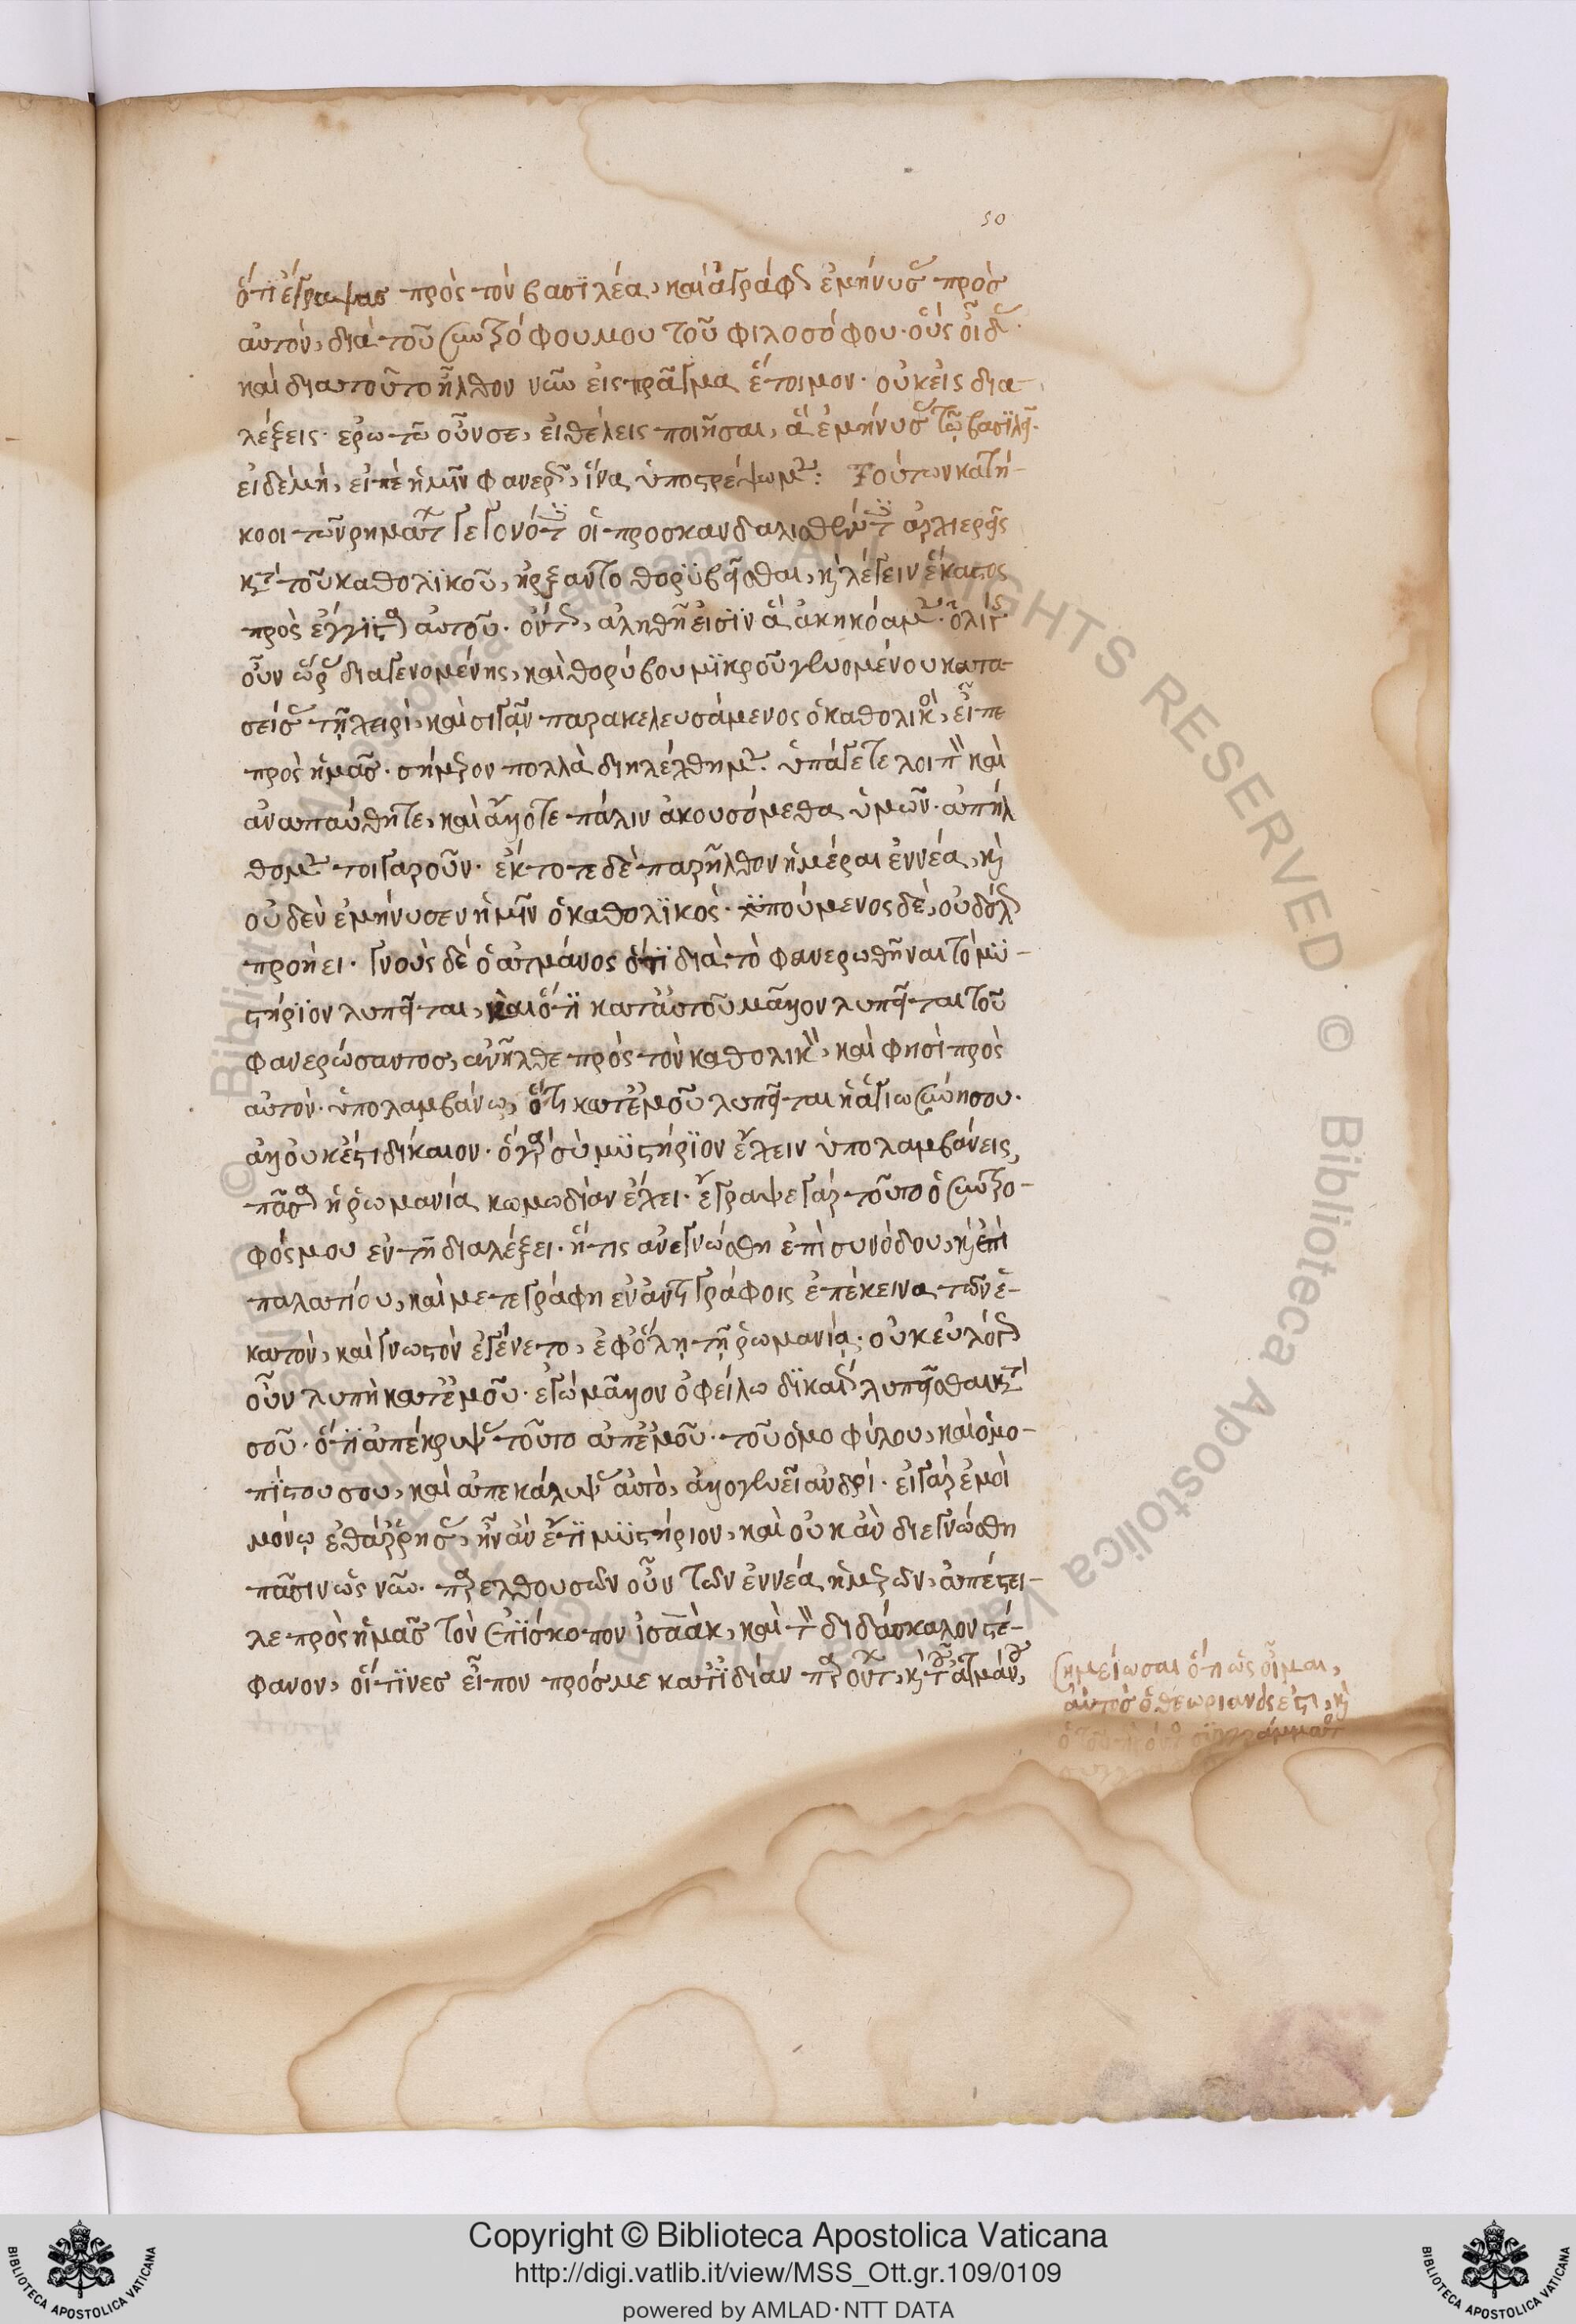 50
ὅτι ἔγραψας πρὸς τὸν βασιλέα, καὶ ἀγράφως ἐμήνυσας πρὸς
αὐτὸν, διὰ τοῦ συντρόφου μου τοῦ φιλοσόφου· οὓς οἶδας·
καὶ διατοῦτο ἦλθον νῦν εἰς πρᾶγμα ἕτοιμον· οὐκ εἰς δια-
λέξεις· ἐρωτῶ οὖν σε, εἰ θέλεις ποιῆσαι, ἃ ἐμήνυσας τῷ βασιλεῖ·
εἰδὲμὴ, εἰπὲ ἡμῖν φανερῶς, ἵνα ὑποστρέψωμεν: Τούτων κατή-
κοοι τῶν ρημάτων γεγονότες οἱ προσκανδαλισθέντες ἀρχιερεῖς
κατὰ τοῦ καθολικοῦ, ἤρξαντο θορυβεῖσθαι, καὶ λέγειν ἕκαστος
πρὸς ἔγγιστα αὐτοῦ· ὄντως, ἀληθῆ εἰσὶν ἃ ἀκηκόαμεν· ὀλίγης
οὖν ὥρας διαγενομένης, καὶ θορύβου μικροῦ γενομένου κατα-
σείσας τῇ χειρὶ, καὶ σιγᾶν παρακελευσάμενος ὁ καθολικὸς, εἶπε
πρὸς ἡμᾶς· σήμερον πολλὰ διηλέχθημεν· ὑπάγετε λοιπὸν καὶ
ἀναπαύθητε, καὶ ἄλλοτε πάλιν ἀκουσόμεθα ὑμῶν· ἀπήλ
θομεν τοιγαροῦν· ἐκ τότε δὲ παρῆλθον ἡμέραι ἐννέα, καὶ
οὐδὲν ἐμήνυσεν ἡμῖν ὁ καθολικός· λυπούμενος δὲ, οὐδόλως
προήει· γνοὺς δὲ ὁ ἀτμάνος ὅτι διὰ τὸ φανερωθῆναι τὸ μυ-
στήριον λυπεῖται, καὶ ὅτι κατ' αὐτοῦ μᾶλλον λυπεῖται τοῦ
φανερώσαντος, ἀνῆλθε πρὸς τὸν καθολικὸν, καὶ φησὶ πρὸς
αὐτόν· ὑπολαμβάνω, ὅτι κατ' ἐμοῦ λυπεῖται ἡ ἁγιωσύνη σου·
ἀλλ' οὐκ ἔστι δίκαιον· ὃ γὰρ σὺ μυστήριον ἔχειν ὑπολαμβάνεις,
πᾶσα ἡ ῥωμανία κωμωδίαν ἔχει· ἔγραψε γὰρ τοῦτο ὁ συντρο-
φός μου ἐν τῇ διαλέξει· ἥτις ἀνεγνώσθη ἐπὶ συνόδου, καὶ ἐπὶ
παλατίου, καὶ μετεγράφη ἐν ἀντιγράφοις ἐπέκεινα τῶν ἑ-
κατὸν, καὶ γνωστὸν ἐγένετο, ἐφ' ὅλῃ τῇ ῥωμανίᾳ· οὐκ εὐλόγως
οὖν λυπῆ κατ' ἐμοῦ· ἐγὼ μᾶλλον ὀφείλω δικαίως λυπεῖσθαι κατὰ
σοῦ· ὅτι ἀπέκρυψας τοῦτο ἀπ' ἐμοῦ· τοῦ ὁμοφύλου, καὶ ὁμο-
πίστου σου, καὶ ἀπεκάλυψας αὐτὸ, ἀλλογενεῖ ἀνδρί· εἰ γὰρ ἐμοὶ
μόνῳ ἐθάρρησας, ἦν ἂν ἔτι μυστήριον, καὶ οὐκ ἂν διεγνώσθη
πᾶσιν ὡς νῦν· παρελθουσῶν οὖν τῶν ἐννέα ἡμερῶν, ἀπέστει-
λε πρὸς ἡμᾶς τὸν ἐπίσκοπον ἰσαὰκ, καὶ τὸν διδάσκαλον στέ-
φανον, οἵτινες εἶπον πρός με κατ' ἰδίαν παρόντος, καὶ τοῦ ἀτμάνου,
Σημείωσαι ὅπως οἶμαι,
αὐτὸς ὁ θεωριανὸς ἐστι, καὶ
Copyright © Biblioteca Apostolica Vaticana
http://digi.vatlib.it/view/MSS_Ott.gr.109/0109
powered by AMLAD·NTT DATA
BIBLIOTECA APOSTOLICA VATICANA
BIBLIOTECA APOSTOLICA VATICANA